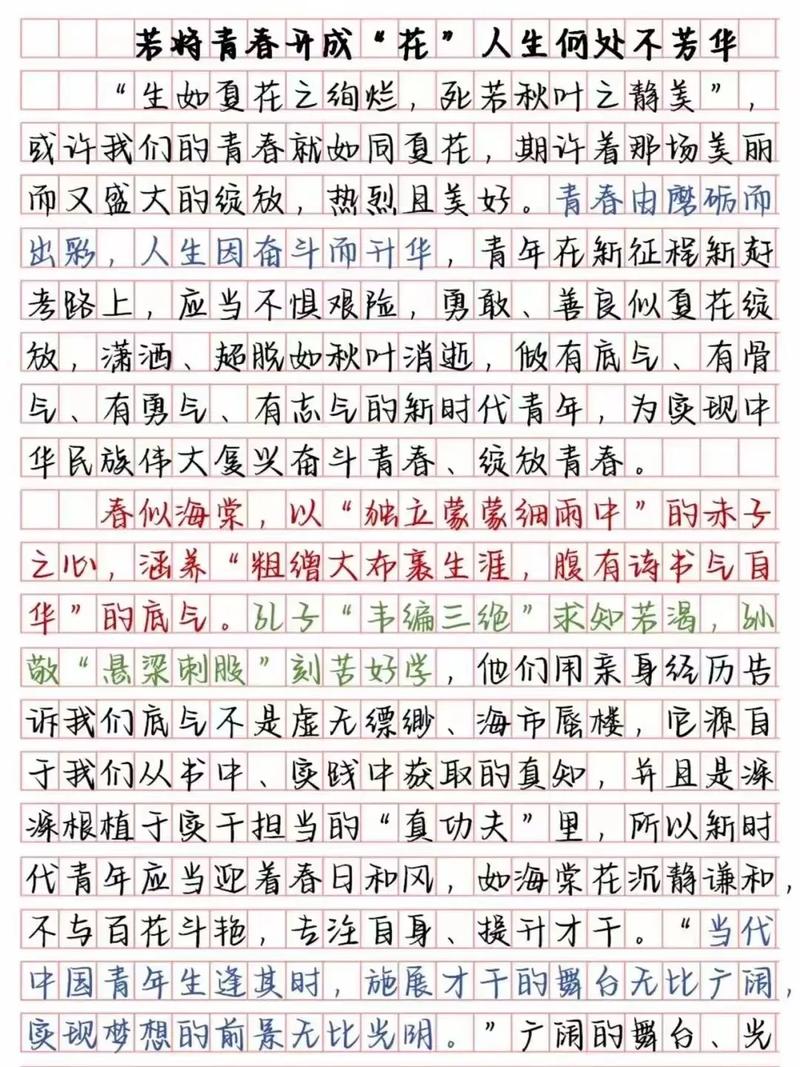 若将青春开成“花”人生何处不芳华
“生如夏花之绚烂，死若秋叶之静美”，
或许我们的青春就如同夏花，期许着那场美丽
而又盛大的绽放，热烈且美好。青春由磨砺而
出彩，人生因奋斗而升华，青年在新征程新赶
考路上，应当不惧艰险，勇敢、善良似夏花绽
放，潇洒、超脱如秋叶消逝，做有底气、有骨
气、有勇气、有志气的新时代青年，为实现中
华民族伟大复兴奋斗青春、绽放青春。
春似海棠，以“独立蒙蒙细雨中”的赤子
之心，涵养“粗缯大布裹生涯，腹有诗书气自
华”的底气。孔子“韦编三绝”求知若渴，孙
敬“悬梁刺股”刻苦好学，他们用亲身经历告
诉我们底气不是虚无缥缈、海市蜃楼，它源自
于我们从书中、实践中获取的真知，并且是深
深根植于实干担当的“真功夫”里，所以新时
代青年应当迎着春日和风，如海棠花沉静谦和，
不与百花斗艳，专注自身、提升才干。“当代
中国青年生逢其时，施展才干的舞台无比广阔，
实现梦想的前景无比光明。”广阔的舞台、光